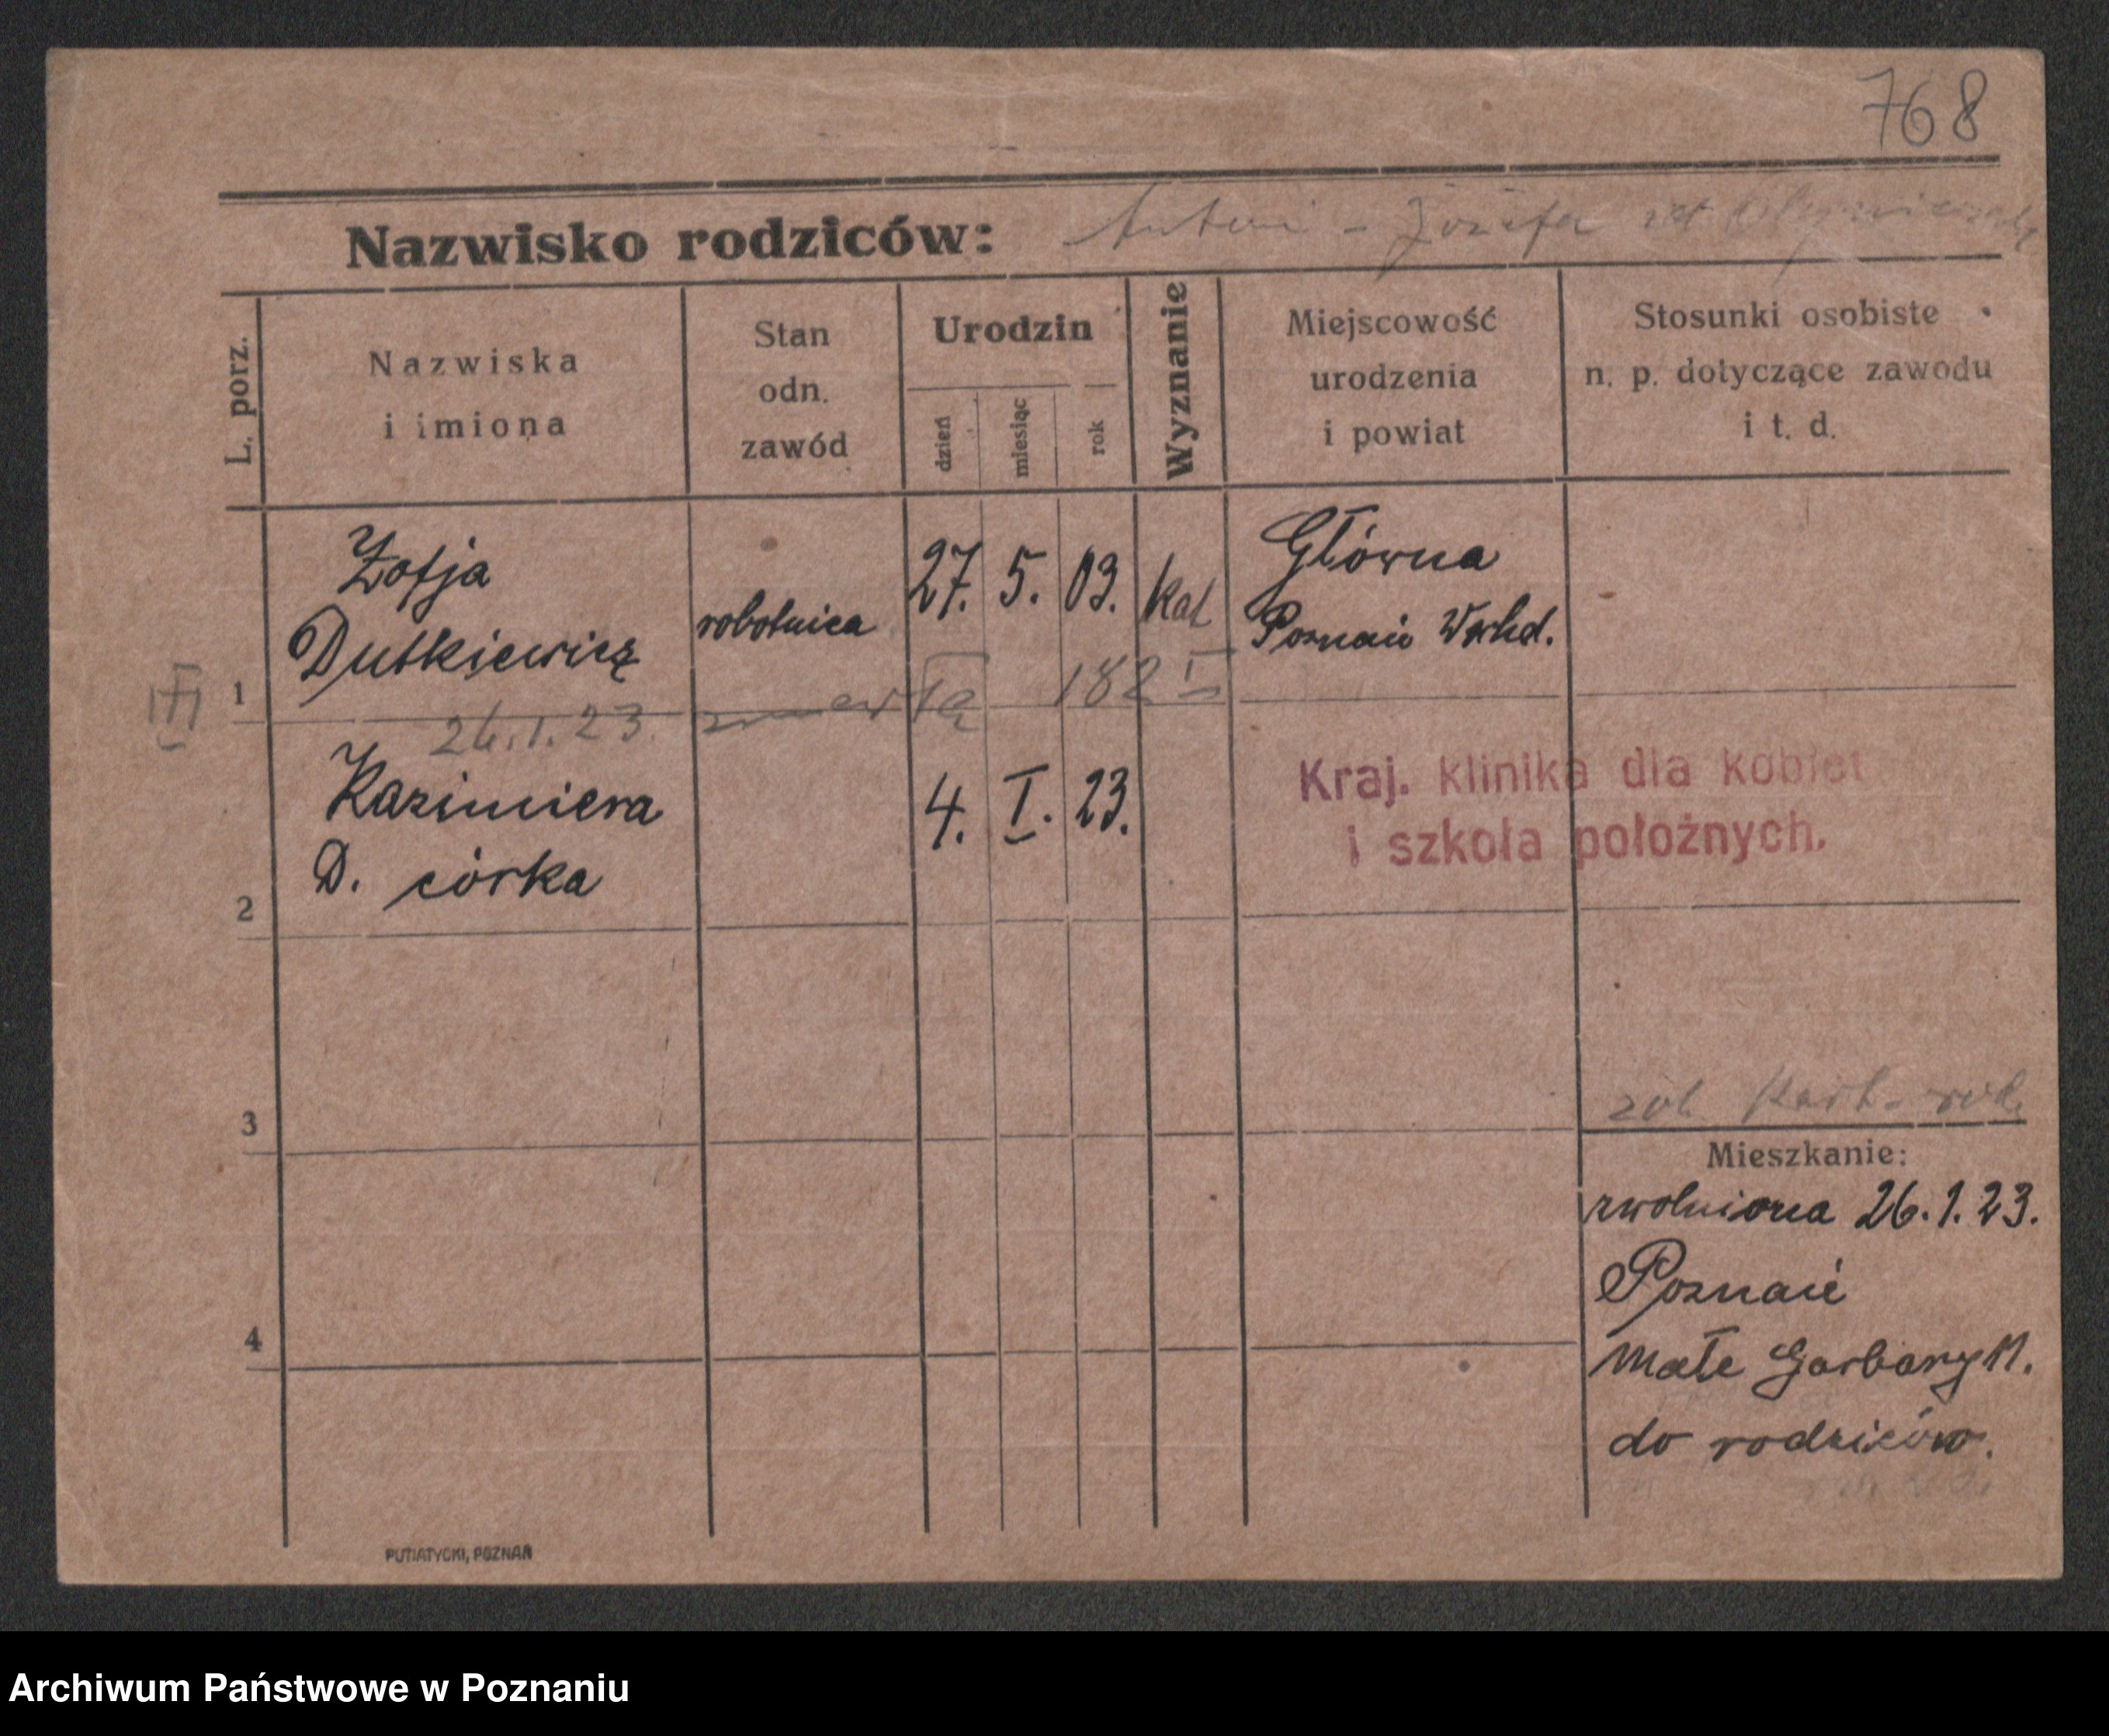 768
Nazwisko rodziców: Antoni - Józefa
L. porz.
Nazwiska
i imiona
Stan
odn.
zawód
Urodzin
dzień
miesiąc
rok
Wyznanie
Miejscowość
urodzenia
i powiat
Stosunki osobiste
n. p. dotyczące zawodu
i t. d.
1
Zofja
Dutkiewicz
robotnica
27. 5. 03.
kat
Główna
Poznań Wschd.
26.1.23.
zmarła 182
2
Kazimiera
D. córka
4. I. 23.
Kraj. klinika dla kobiet
i szkoła położnych.
3
4
Mieszkanie:
zwolniona 26.1.23.
Poznań
Małe Garbary 11.
do rodziców.
PUTIATYCKI, POZNAŃ
Archiwum Państwowe w Poznaniu